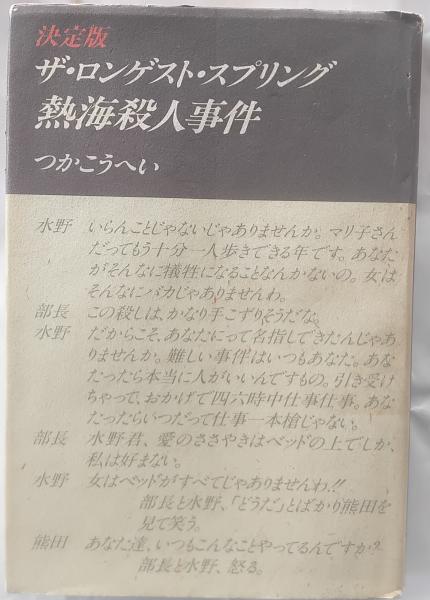 決定版
ザ・ロンゲスト・スプリング
熱海殺人事件
つかこうへい
水野 いらんことじゃないじゃありませんか。マリ子さん
だってもう十分一人歩きできる年です。あなた
がそんなに犠牲になることなんかないの。女は
そんなにバカじゃありませんわ。
部長 この殺しは、かなり手こずりそうだな。
水野 だからこそ、あなたにって名指しできたんじゃあ
りませんか。難しい事件はいつもあなた。あな
たったら本当に人がいいんですもの。引き受け
ちゃって、おかげで四六時中仕事仕事。あな
たったらいつだって仕事一本槍じゃない。
部長 水野君、愛のささやきはベッドの上でしか、
私は好まない。
水野 女はベッドがすべてじゃありませんわ!!
部長と水野、「どうだ」とばかり熊田を
見て笑う。
熊田 あなた達、いつもこんなことやってるんですか?
部長と水野、怒る。